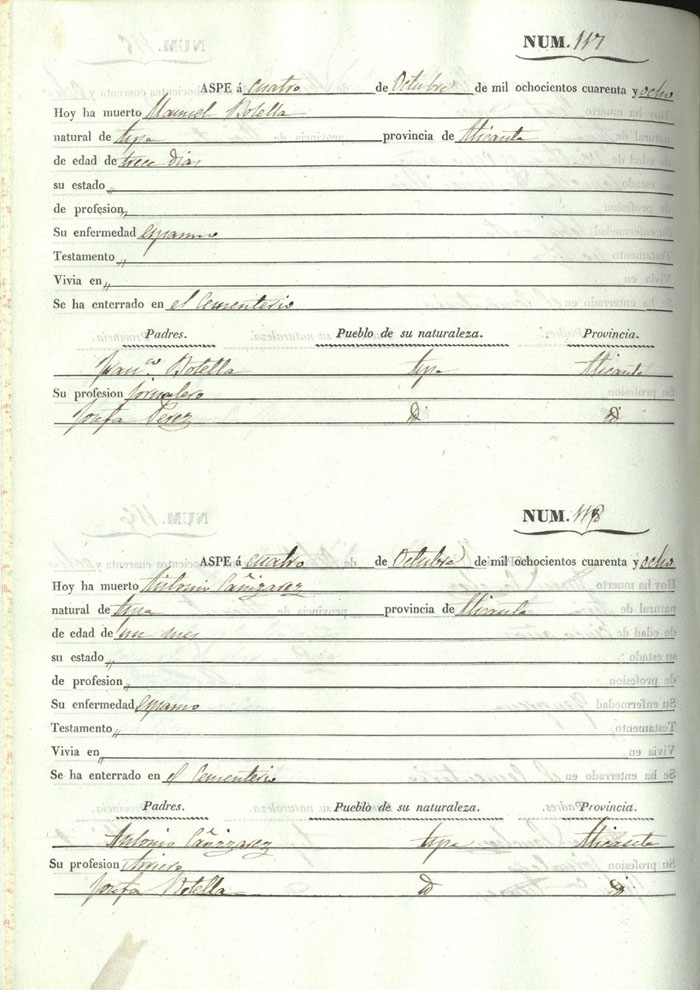 NUM. 117
ASPE á cuatro de Octubre de mil ochocientos cuarenta y ocho
Hoy ha muerto Manuel Botella
natural de Aspe provincia de Alicante
de edad de trece dias
su estado "
de profesion "
Su enfermedad espasmo
Testamento "
Vivia en "
Se ha enterrado en el Cementerio
Padres. Pueblo de su naturaleza. Provincia.
Fran.co Botella Aspe Alicante
Su profesion jornalero
Josefa Perez D D
NUM. 118
ASPE á cuatro de Octubre de mil ochocientos cuarenta y ocho
Hoy ha muerto Antonio Cañizarez
natural de Aspe provincia de Alicante
de edad de un mes
su estado "
de profesion "
Su enfermedad espasmo
Testamento "
Vivia en "
Se ha enterrado en el Cementerio
Padres. Pueblo de su naturaleza. Provincia.
Antonio Cañizarez Aspe Alicante
Su profesion
Josefa Botella D D